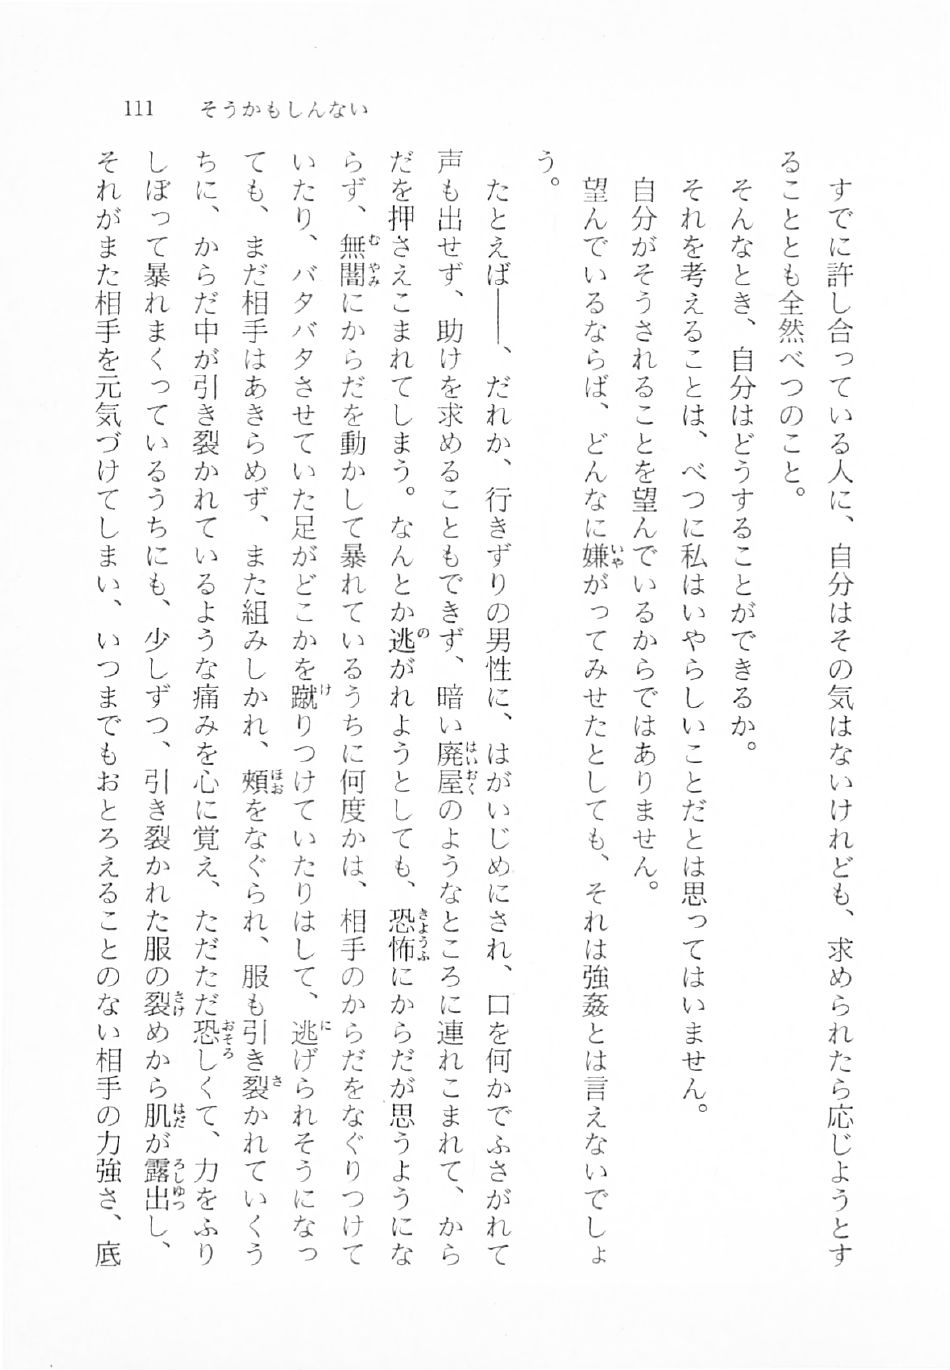 111 そうかもしんない
すでに許し合っている人に、自分はその気はないけれども、求められたら応じようとす
ることとも全然べつのこと。
そんなとき、自分はどうすることができるか。
それを考えることは、べつに私はいやらしいことだとは思ってはいません。
自分がそうされることを望んでいるからではありません。
望んでいるならば、どんなに嫌がってみせたとしても、それは強姦とは言えないでしょ
う。
たとえば――、だれか、行きずりの男性に、はがいじめにされ、口を何かでふさがれて
声も出せず、助けを求めることもできず、暗い廃屋のようなところに連れこまれて、から
だを押さえこまれてしまう。なんとか逃がれようとしても、恐怖にからだが思うようにな
らず、無闇にからだを動かして暴れているうちに何度かは、相手のからだをなぐりつけて
いたり、バタバタさせていた足がどこかを蹴りつけていたりはして、逃げられそうになっ
ても、まだ相手はあきらめず、また組みしかれ、頰をなぐられ、服も引き裂かれていくう
ちに、からだ中が引き裂かれているような痛みを心に覚え、ただただ恐しくて、力をふり
しぼって暴れまくっているうちにも、少しずつ、引き裂かれた服の裂めから肌が露出し、
それがまた相手を元気づけてしまい、いつまでもおとろえることのない相手の力強さ、底